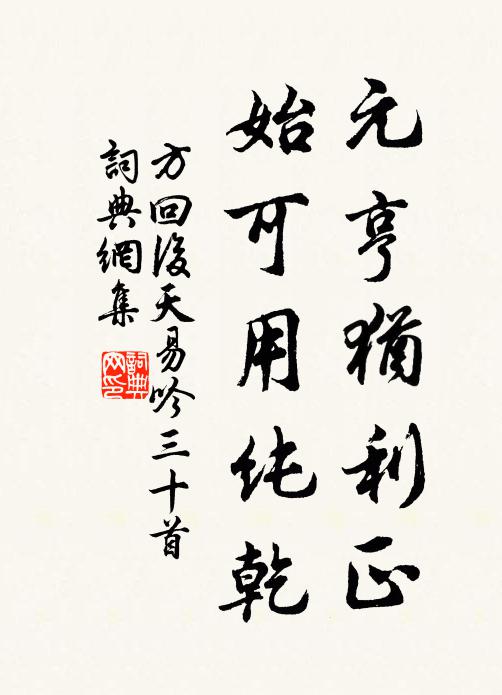 元亨猶利正
始可用純乾
方回後天易吟三十首
詞典網集
詞典
网印